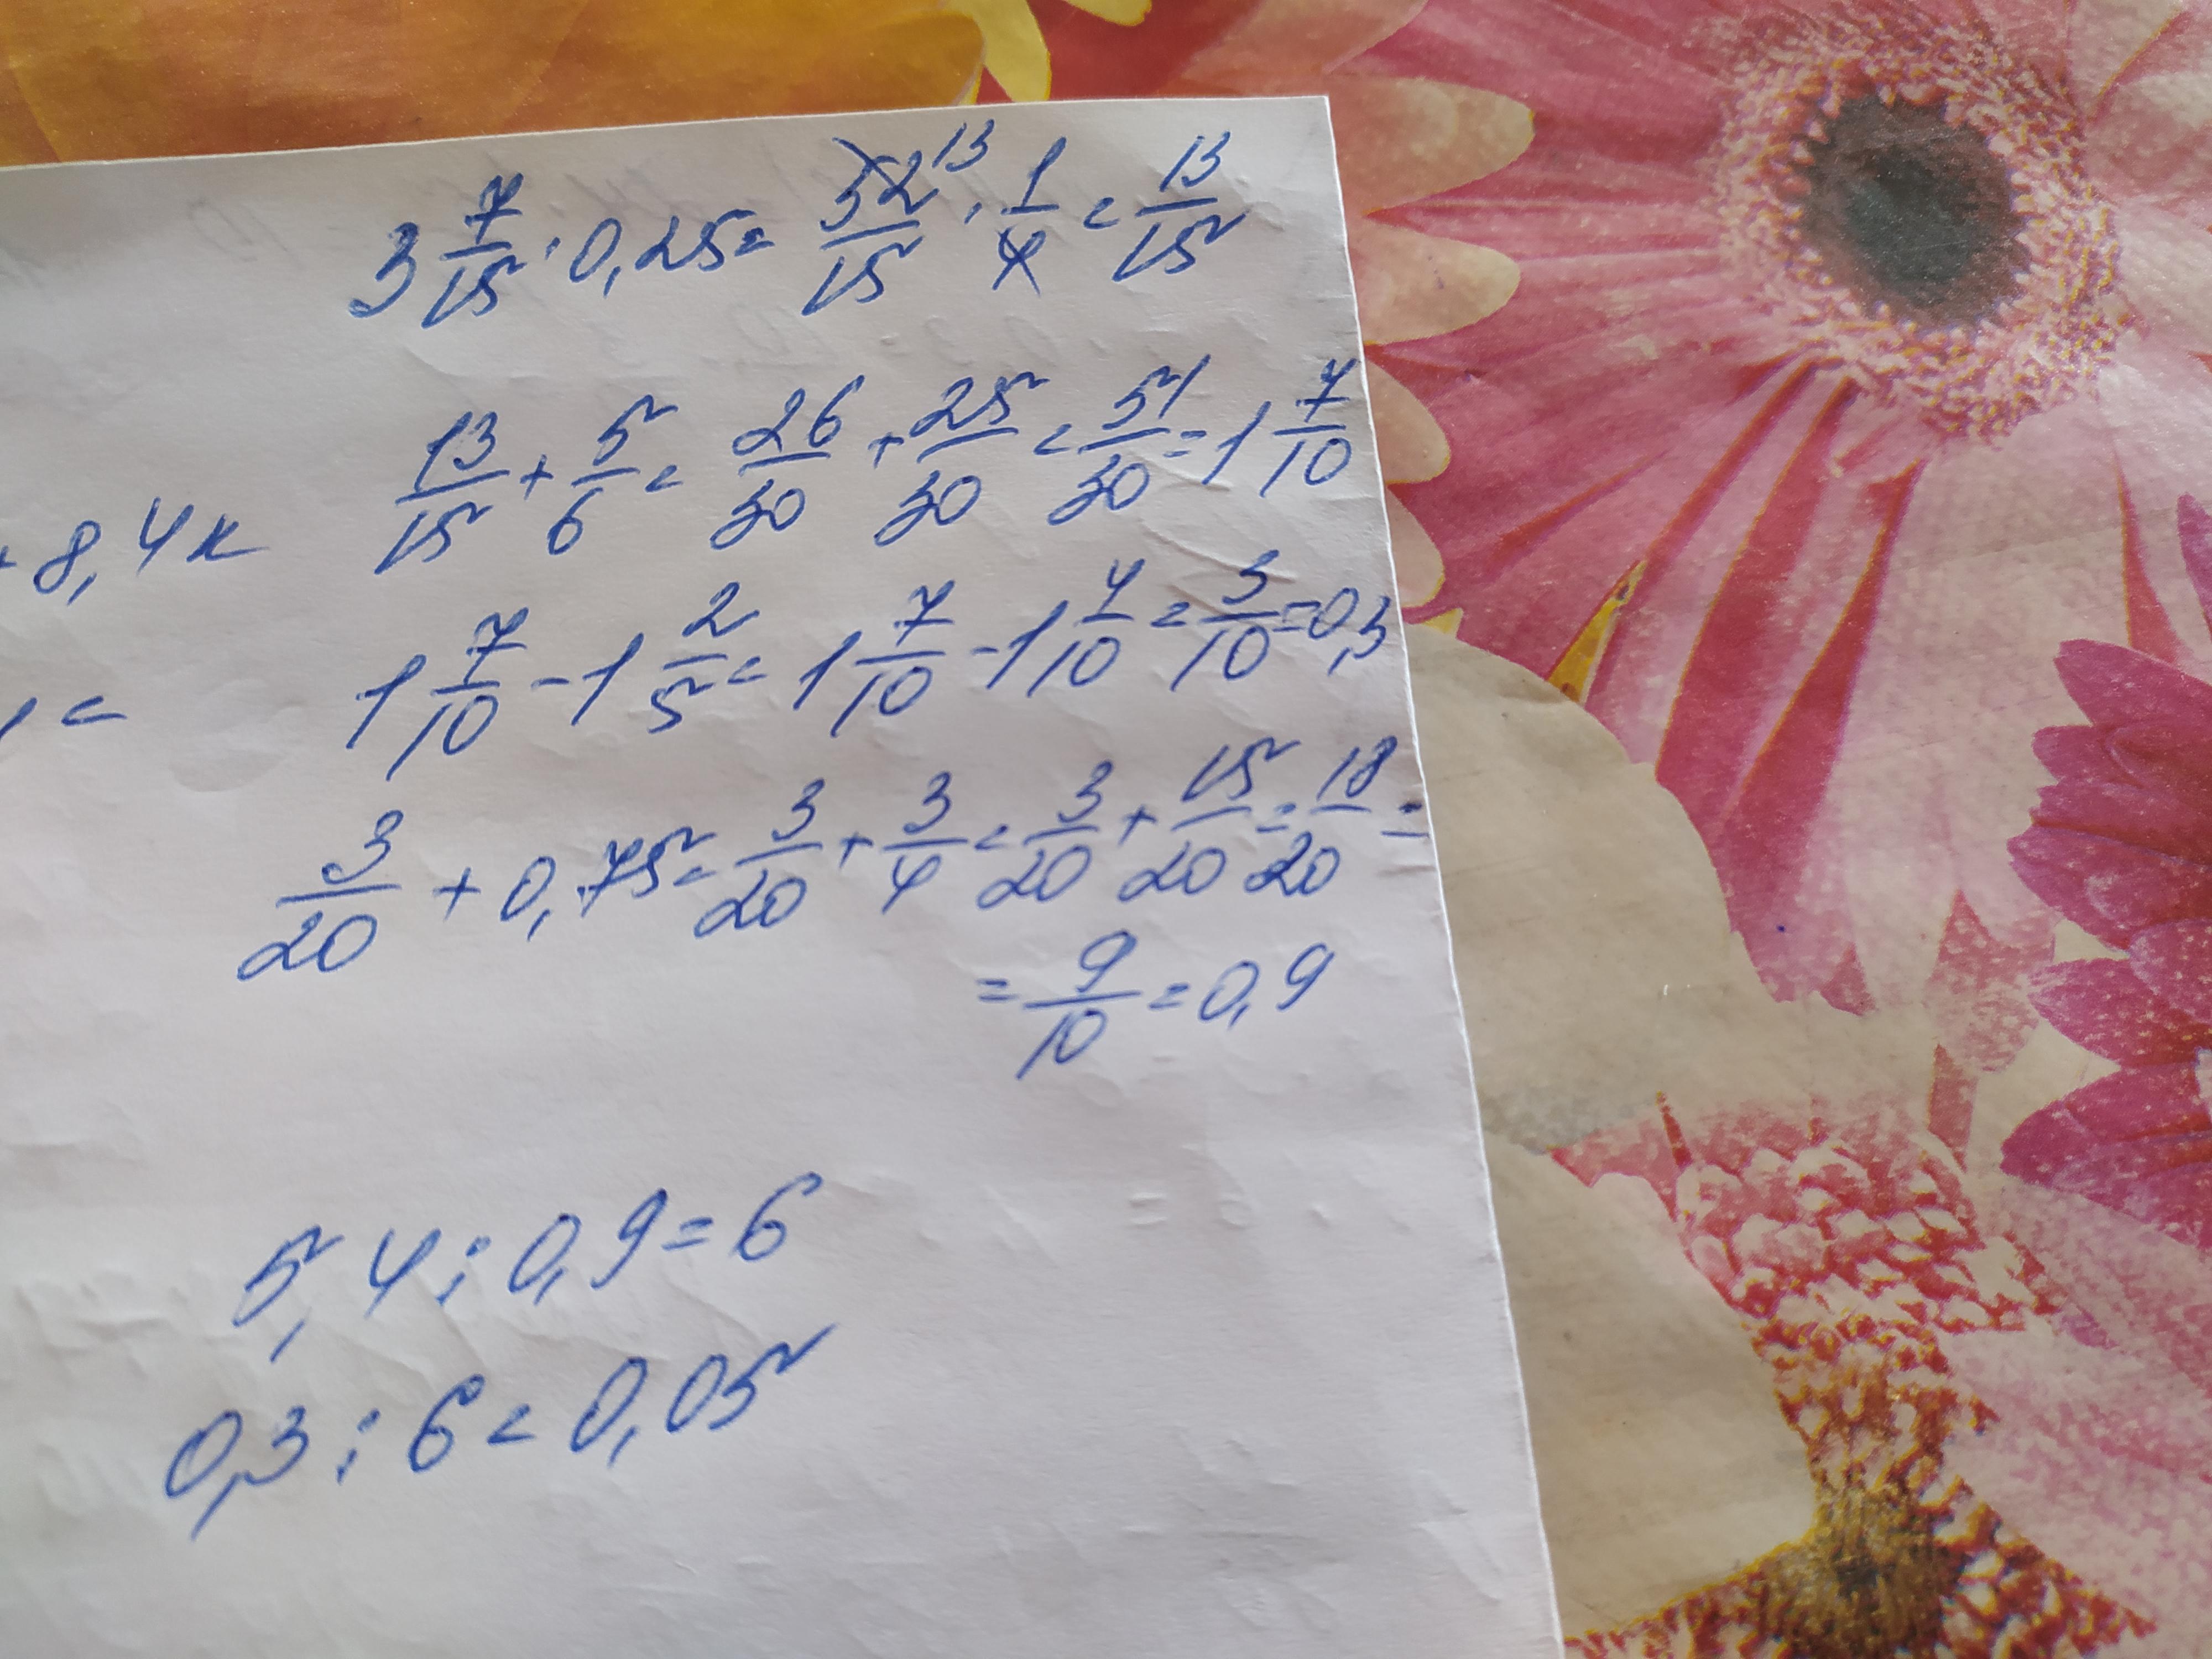 3 7/15 · 0,25 = 52/15 13 · 1/4 = 13/15
13/15 + 5/6 = 26/30 + 25/30 = 51/30 = 1 7/10
+ 8,4x
1 7/10 - 1 2/5 = 1 7/10 - 1 4/10 = 3/10 = 0,3
=
3/20 + 0,75 = 3/20 + 3/4 = 3/20 + 15/20 = 18/20 =
= 9/10 = 0,9
5,4 : 0,9 = 6
0,3 : 6 = 0,05